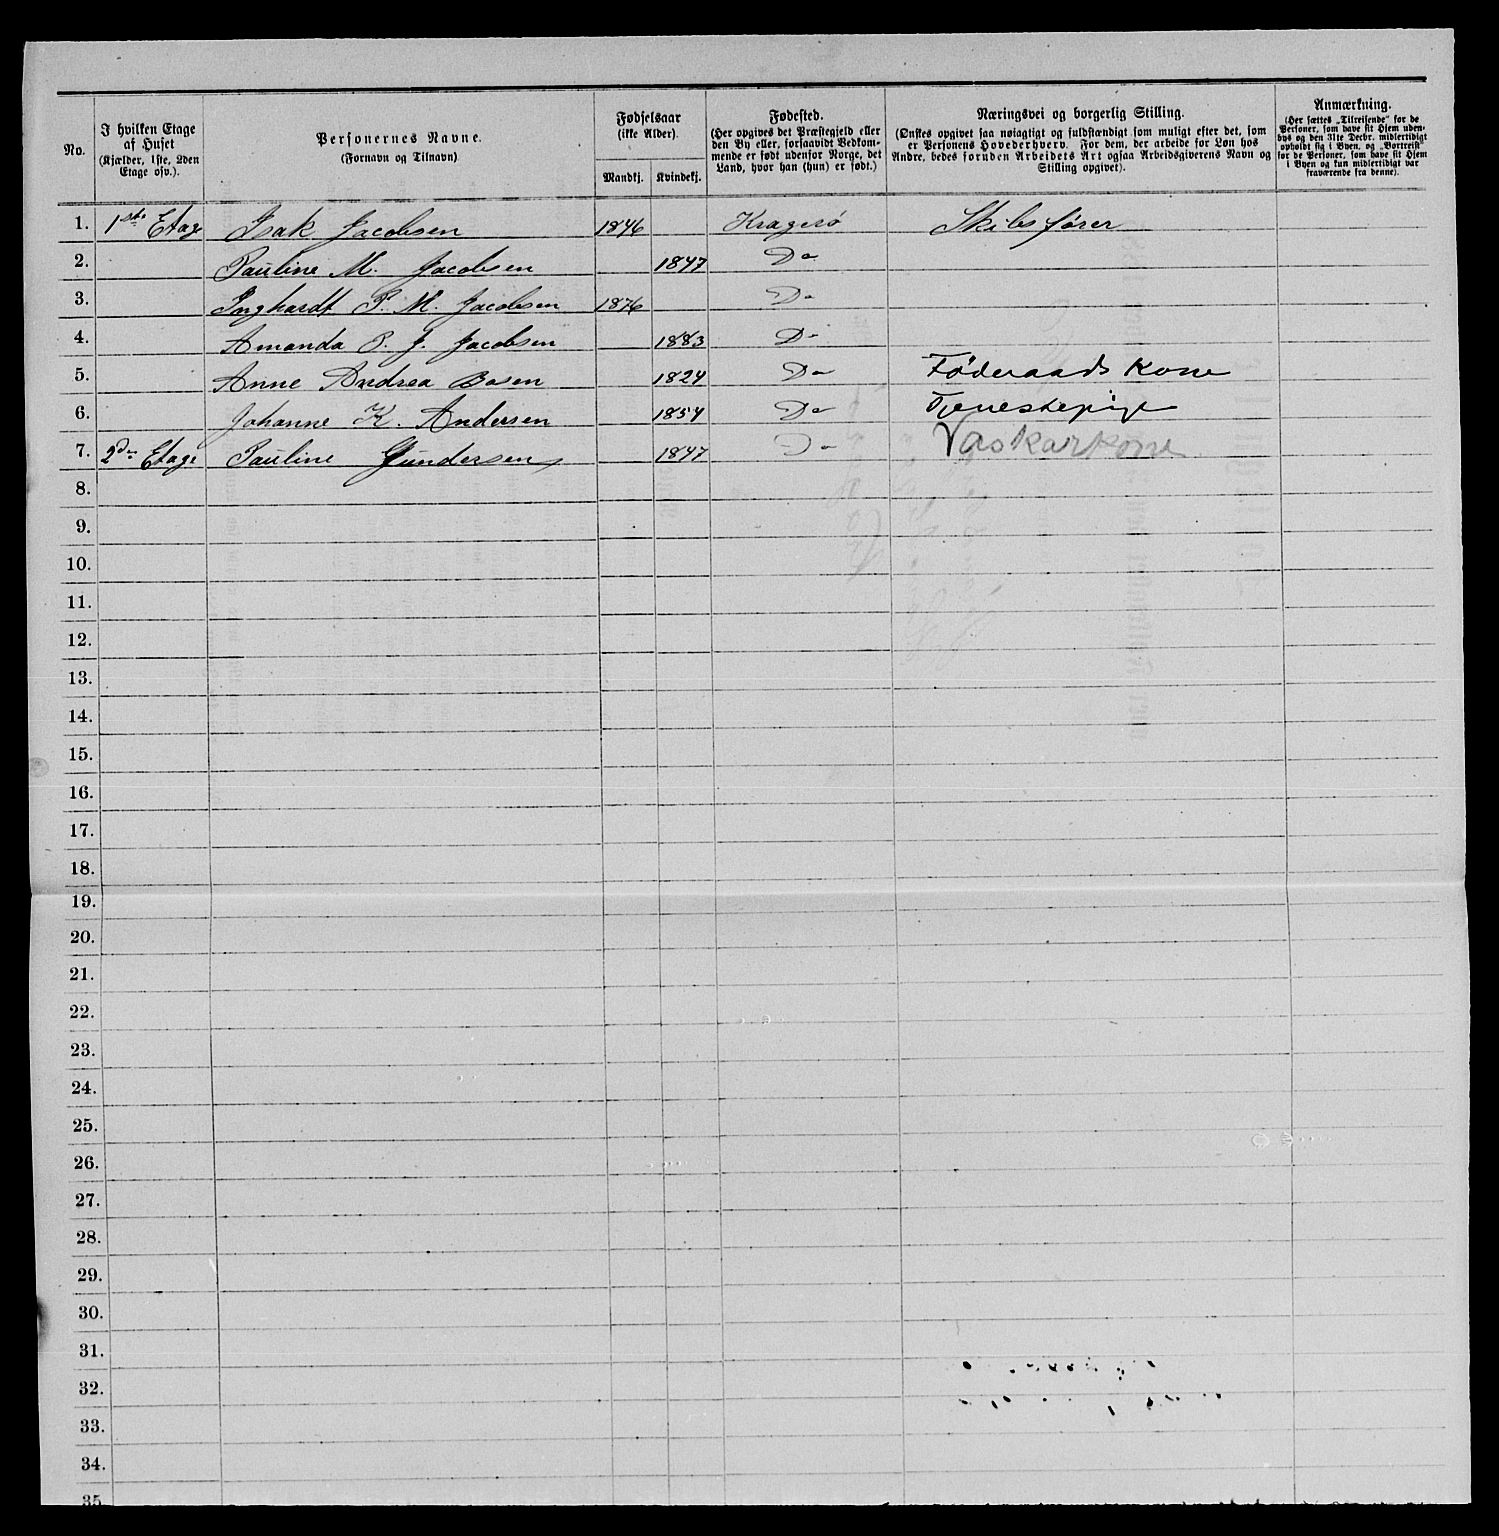 No.
I hvilken Etage af Huset
(Kjælder, 1ste, 2den Etage osv.).
Personernes Navne.
(Fornavn og Tilnavn)
Fødselsaar
(ikke Alder).
Mandkj.
Kvindekj.
Fødested.
(Her opgives det Præstegjeld eller
den By eller, forsaavidt Bedkom-
mende er født udenfor Norge, det
Land, hvor han (hun) er født.)
Næringsvei og borgerlig Stilling.
(Ønskes opgivet saa nøiagtigt og fuldstændigt som muligt efter det, som
er Personens Hovederhverv. For dem, der arbeide for Løn hos
Andre, bedes foruden Arbeidets Art ogsaa Arbeidsgiverens Navn og
Stilling opgivet).
Anmærkning.
(Her sættes „Tilreisende“ for de
Personer, som have sit Hjem uden-
bys og den 31te Decbr. midlertidigt
opholdt sig i Byen, og „Bortreist“
for de Personer, som have sit Hjem
i Byen og kun midlertidigt var
fraværende fra denne).
1. 1ste Etage Isak Jacobsen 1846 Kragerö Skibsfører
2. Pauline M. Jacobsen 1847 Do
3. Inghardt P. M. Jacobsen 1876 Do
4. Amanda P. J. Jacobsen 1883 Do
5. Anne Andrea Bosen 1824 Do Föderaads Kone
6. Johanne K. Andersen 1854 Do Tjenestepige
7. 2den Etage Pauline Gundersen 1847 Do Vaskarkone
8.
9.
10.
11.
12.
13.
14.
15.
16.
17.
18.
19.
20.
21.
22.
23.
24.
25.
26.
27.
28.
29.
30.
31.
32.
33.
34.
35